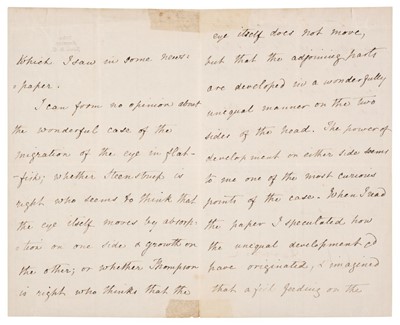 Which I saw in some news=
=paper.
I can from no opinion about
the wonderful case of the
migration of the eye in flat-
-fish; whether Steenstrup is
right who seems to think that
the eye itself moves by absorp-
-tion on one side & growth on
the other; or whether Thompson
is right who thinks that the
eye itself does not move,
but that the adjoining parts
are developed in a wonderfully
unequal manner on the two
sides of the head. The power of
development on either side seems
to me one of the most curious
points of the case. When I read
the paper I speculated how
the unequal development cd
have originated, & imagined
that a fish feeding on the